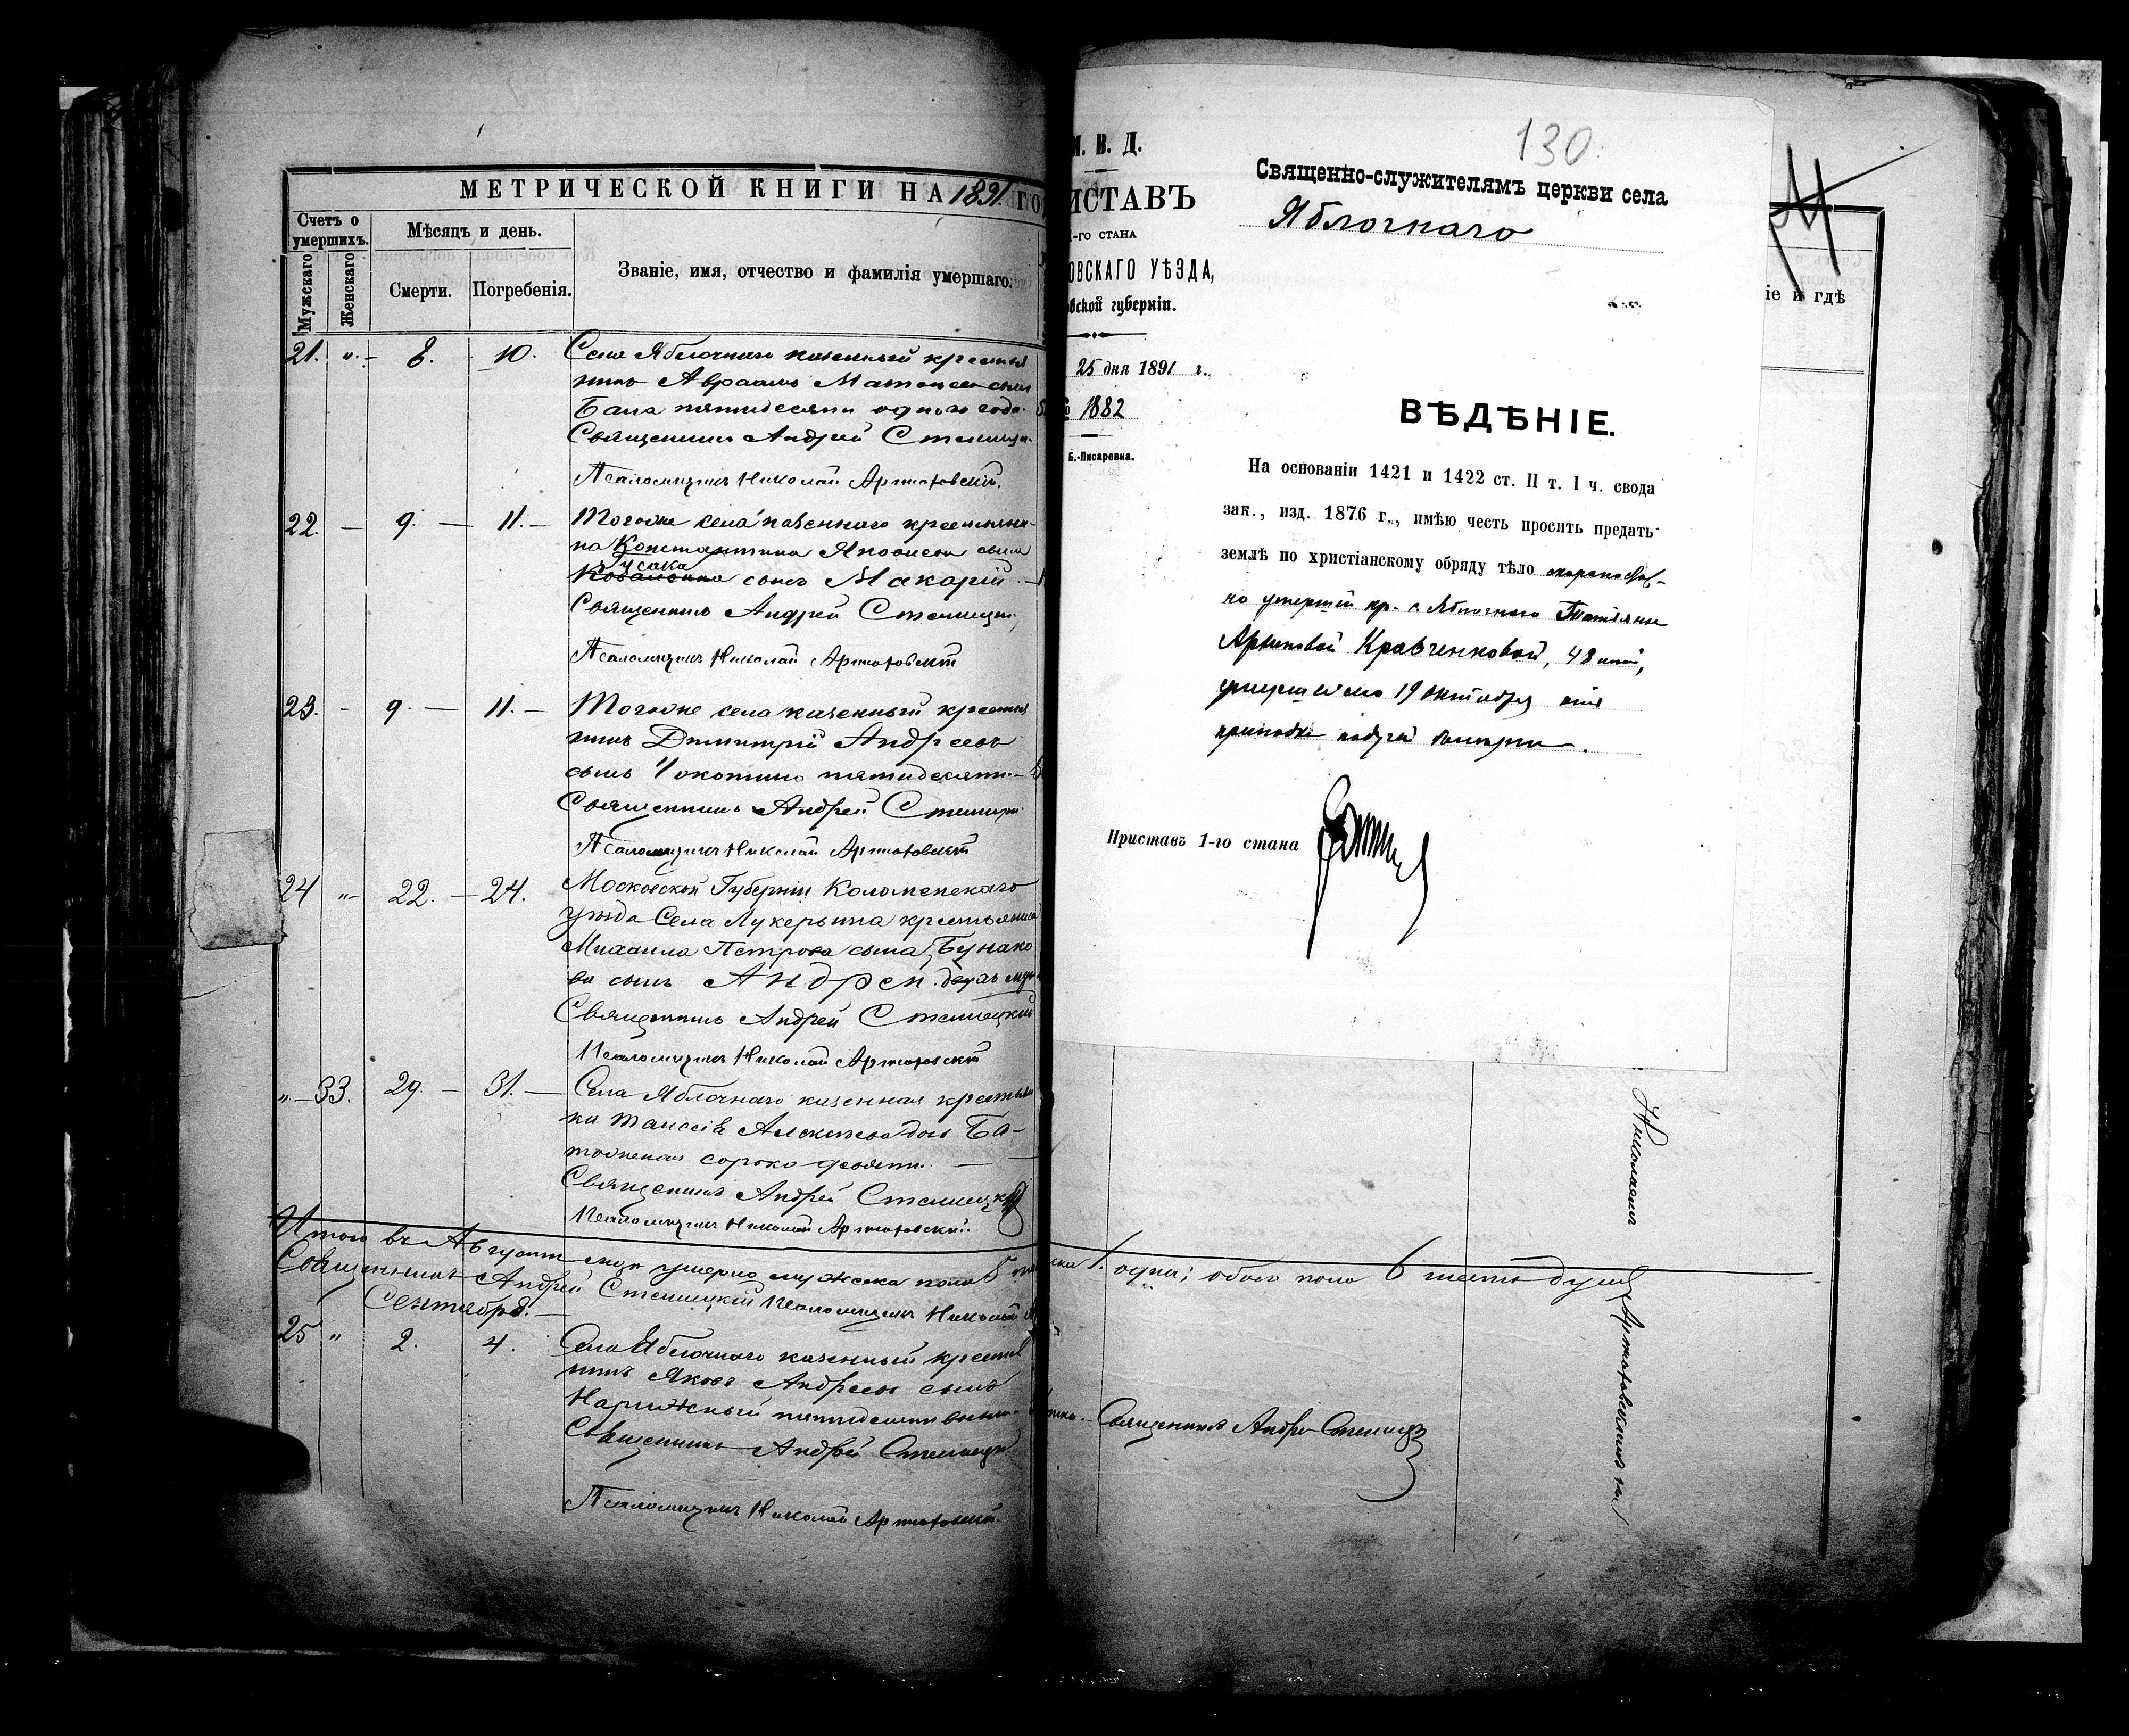 МЕТРИЧЕСКОЙ КНИГИ НА 1891 ГО
Счетъ о умершихъ.
Мужскаго
Женскаго
Мѣсяцъ и день.
Смерти.
Погребенія.
Званіе, имя, отчество и фамилія умершаго.
21. „ - 8. 10. Села Яблочнаго казенный крестья
нинъ Авраамъ Матѳеевъ сынъ
пятидесяти одного года
Священникъ Андрей Стеллецк
Псаломщикъ Николай Артюховскій.
22. — 9. — 11. — Тогоже села казенного крестьяни-
на Константина Яковлева сына
сынъ Макарій
Священникъ Андрей Стеллецк
Псаломщикъ Николай Артюховскій
23. - 9. — 11. — Тогоже села казенный крестья
нинъ Димитрій Андреевъ
сынъ пятидесяти
Священникъ Андрей Стеллецк
Псаломщикъ Николай Артюховскій
24 „ - 22. — 24. Московской Губерніи Коломенскаго
уѣзда Села Лукерьина крестьянина
Михаила Петрова сына Бунако
ва сынъ Андрей. двухъ
Священникъ Андрей Стеллецкій
Псаломщикъ Николай Артюховскій
„ — 33. 29. — 31. — Села Яблочнаго казенная крестьян
ка
сорока девяти
Священникъ Андрей Стеллецкій
Псаломщикъ Николай Артюховскій.
Итого въ Августѣ умерло мужска пола 5 ска 1. одна; обоего пола 6 шесть душъ
Священникъ Андрей Стеллецкій Псаломщикъ Николай
Сентябрь.
25 „ 2. 4. Села Яблочнаго казенный крестья
нинъ Яковъ Андреевъ сынъ
Нарижный пятидесяти
Священникъ Андрей Стеллецк
Псаломщикъ Николай Артюховскій.
Священникъ Андрей Стеллецк
М. В. Д.
ИСТАВЪ
1-го СТАНА
ОВСКАГО УѢЗДА,
вской губерніи.
25 дня 1891 г.
№ 1882
Б.-Писаревка.
130
Священно-служителямъ церкви села
Яблочнаго
ВѢДѢНІЕ.
На основаніи 1421 и 1422 ст. II т. I ч. свода
зак., изд. 1876 г., имѣю честь просить предать
землѣ по христіанскому обряду тѣло скоропостиж-
но умершей кр. с. Яблочнаго Татьяны
Кравченковой, 48 лѣтъ,
умершей 19 октября отъ
припадка падучей болѣзни.
Приставъ 1-го стана
іе и гдѣ
Николаемъ
Артюховскимъ